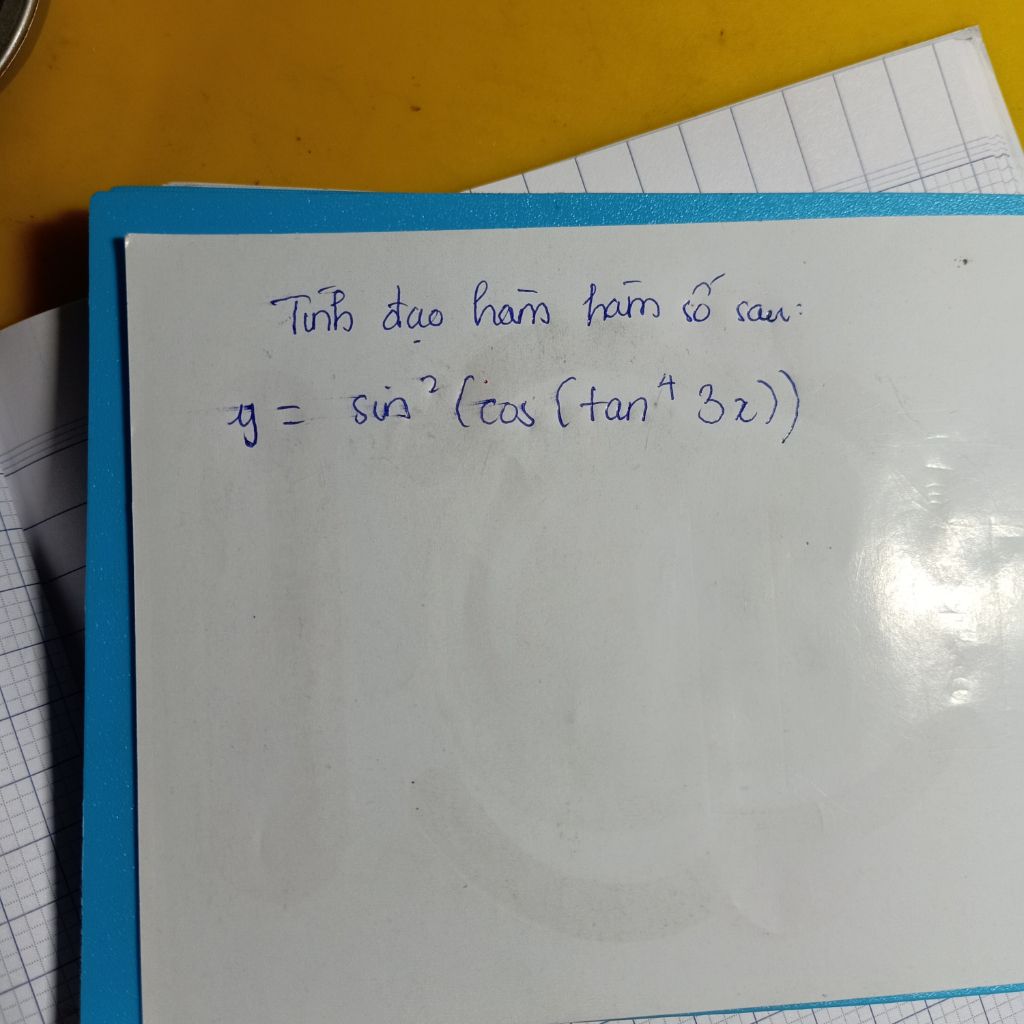 Tính đạo hàm hàm số sau:
y = sin² (cos (tan⁴ 3x))